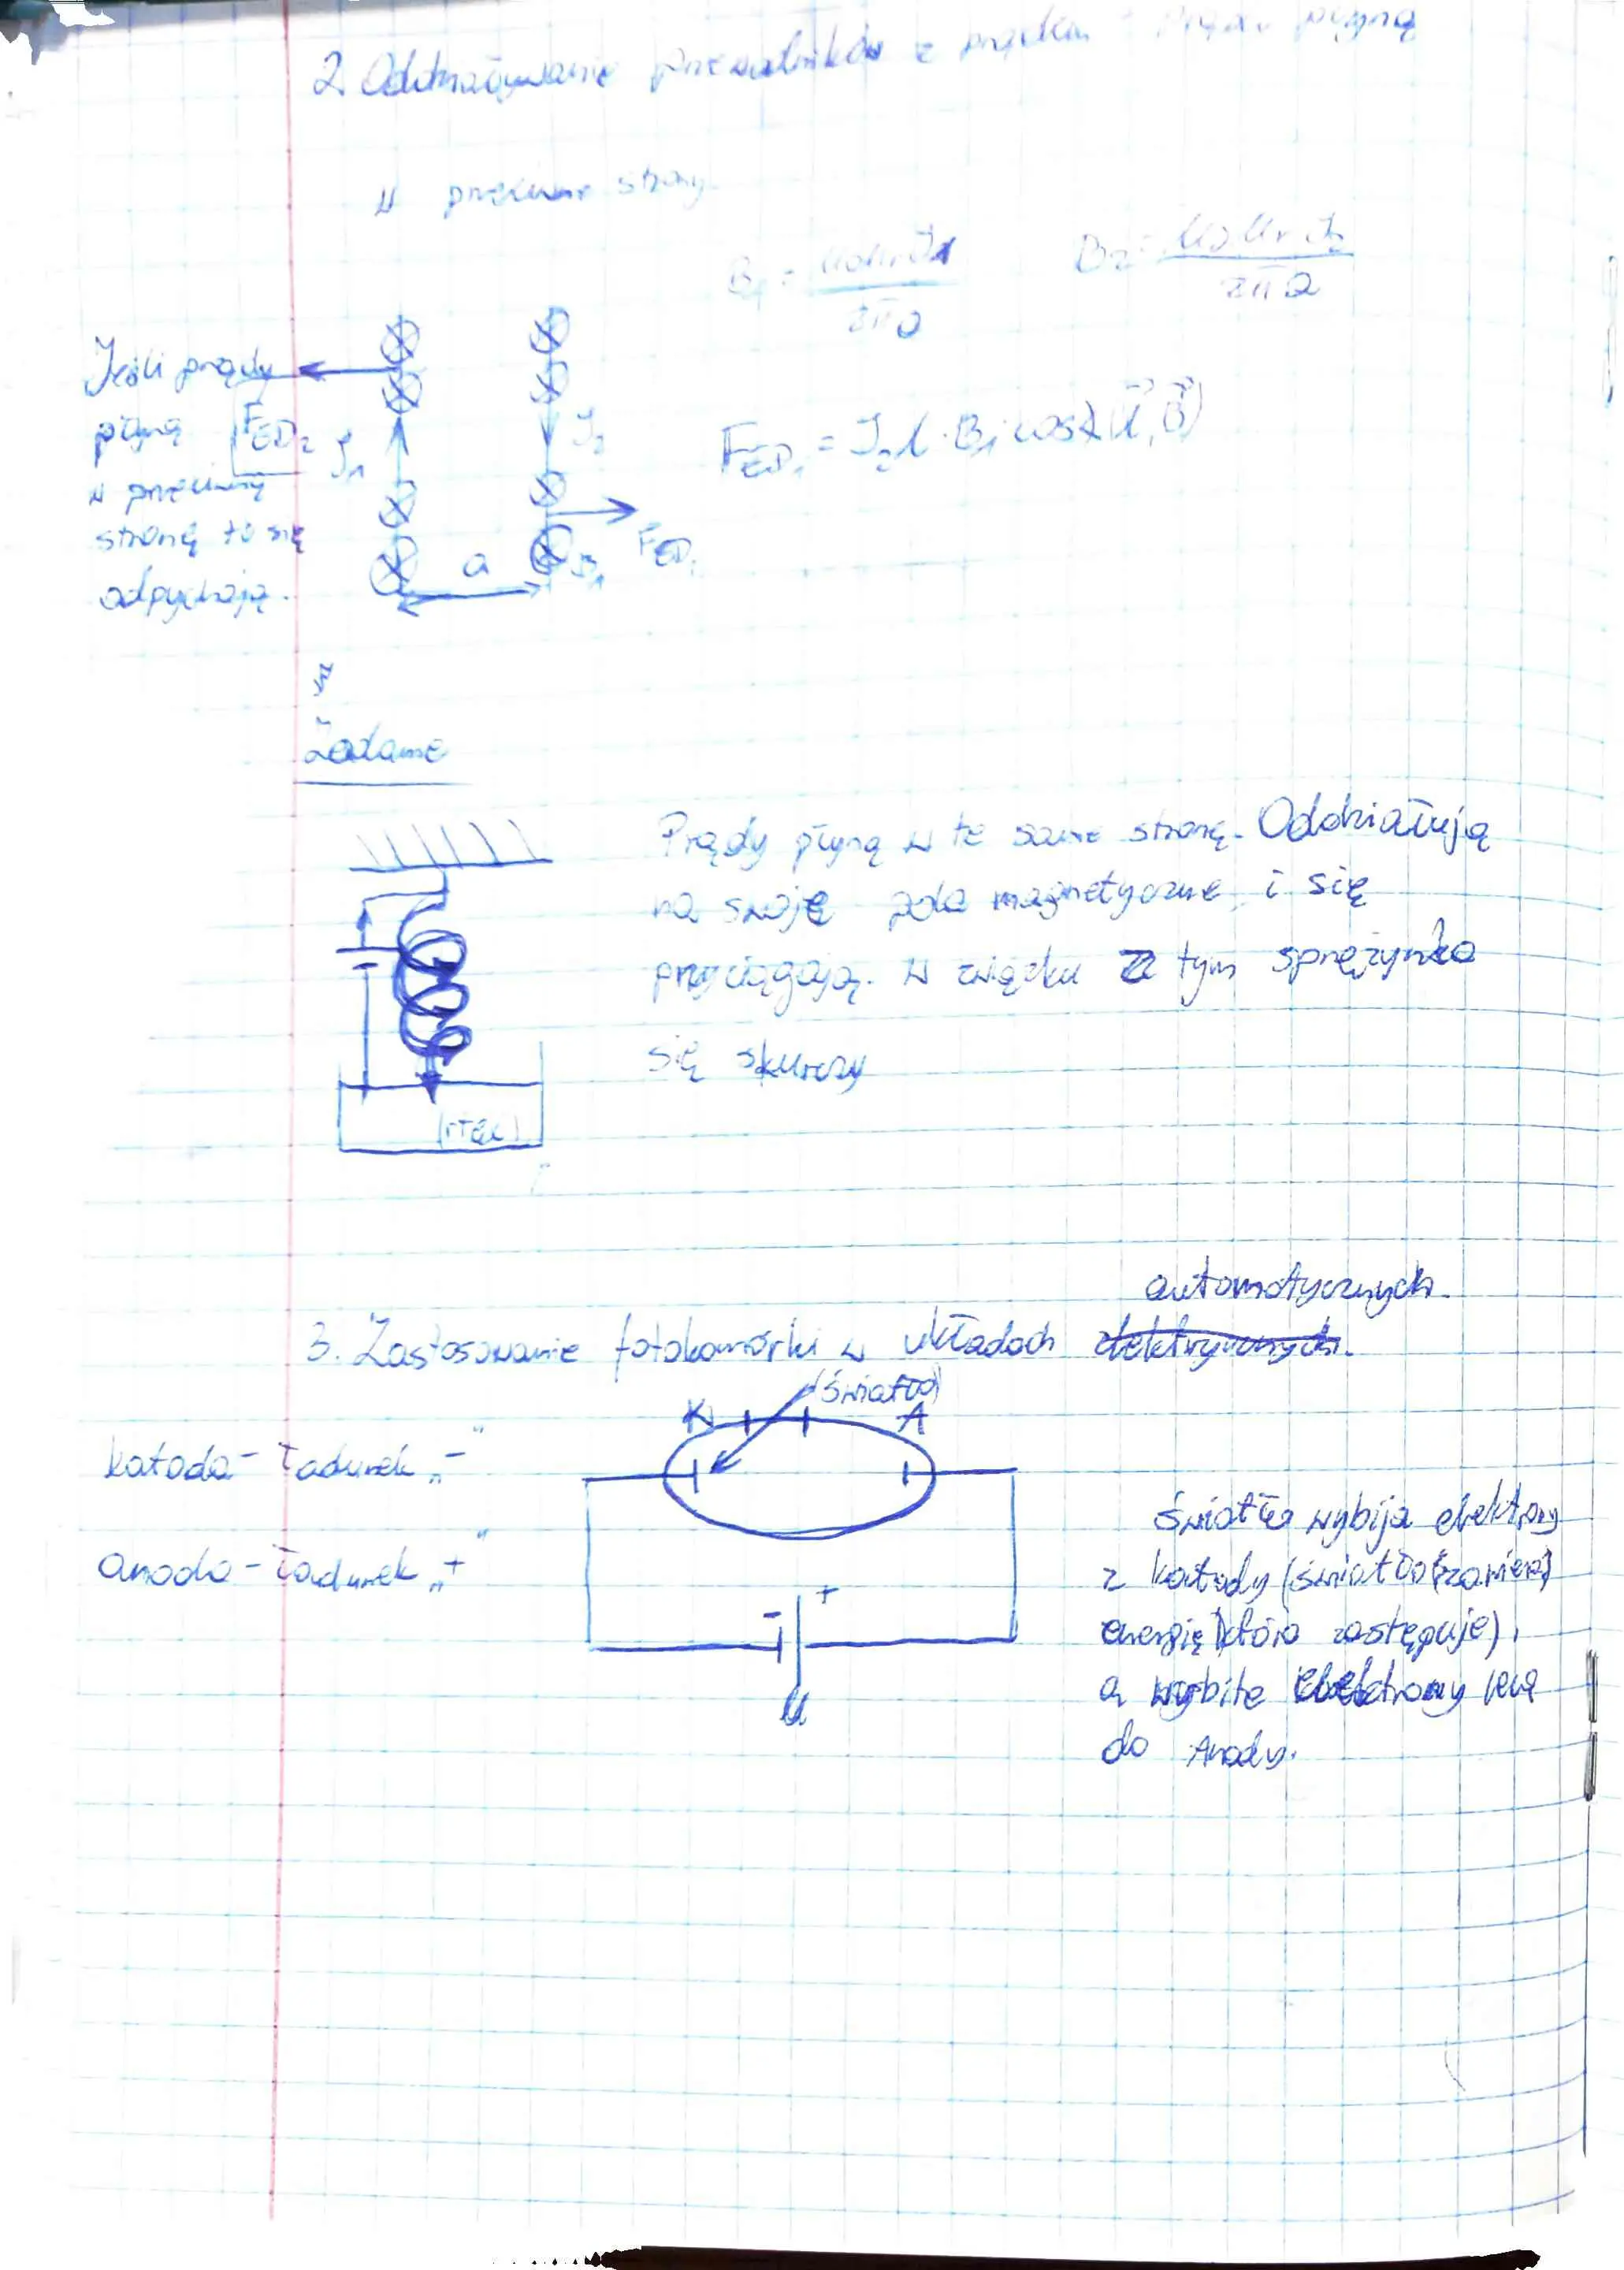 2. Oddziaływanie przewodników z prądem - Prądy płyną
w przeciwne strony.
B₁ = μ₀μᵣJ₁ / 2πa
B₂ = μ₀μᵣJ₂ / 2πa
Jeśli prądy
płyną
w przeciwną
stronę to się
odpychają.
F_ED₂
J₁
J₂
a
B₁
F_ED₁
F_ED₁ = J₂ l · B₁ · cos∢(l, B)
Zadanie
Prądy płyną w te same stronę. Oddziałują
na swoje pola magnetyczne, i się
przyciągają. W związku z tym sprężynka
się skurczy
(rtęć)
automatycznych.
3. Zastosowanie fotokomórki w układach elektrycznych.
(światło)
K A
katoda - ładunek „-"
anoda - ładunek „+"
- +
U
światło wybija elektrony
z katody (światło zawiera
energię która zastępuje),
a wybite elektrony lecą
do Anody.